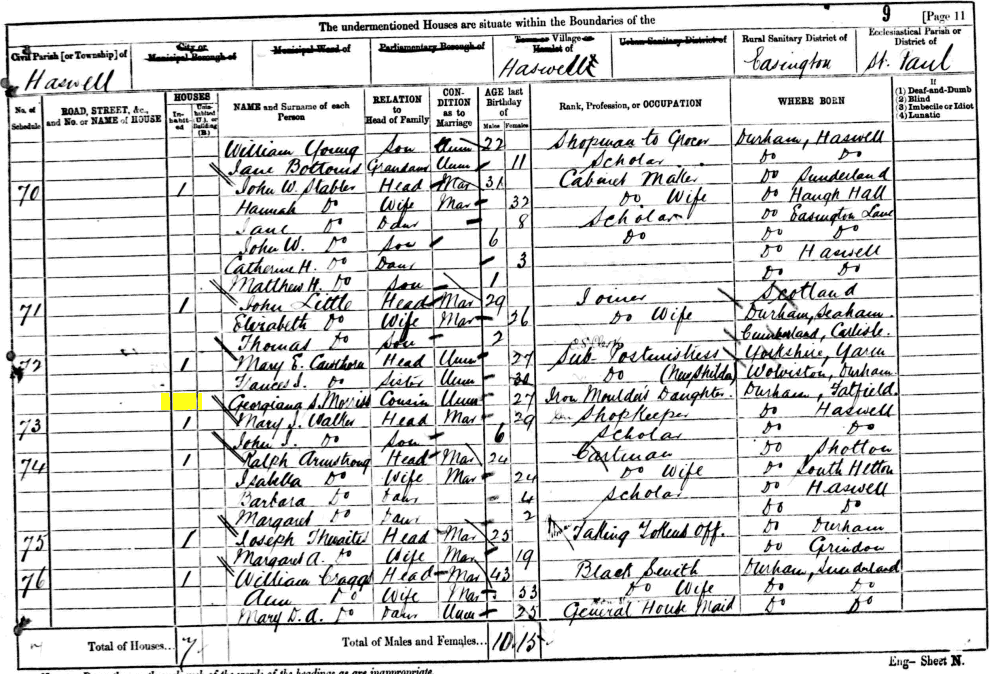 The undermentioned Houses are situate within the Boundaries of the
9 [Page 11
Civil Parish [or Township] of
City or Municipal Borough of
Municipal Ward of
Parliamentary Borough of
Town or Village or Hamlet of
Urban Sanitary District of
Rural Sanitary District of
Ecclesiastical Parish or District of
Haswell Haswell Easington St. Paul
No. of Schedule
ROAD, STREET, &c., and No. or NAME of HOUSE
HOUSES
Inhabited
Uninhabited (U.), or Building (B.)
NAME and Surname of each Person
RELATION to Head of Family
CONDITION as to Marriage
AGE last Birthday of
Males Females
Rank, Profession, or OCCUPATION
WHERE BORN
If
(1) Deaf-and-Dumb
(2) Blind
(3) Imbecile or Idiot
(4) Lunatic
William Young Son Unm 22 Shopman to Grocer Durham, Haswell
Jane Bottoms Grandaur Unm 11 Scholar Do Do
70 1 John W. Stabler Head Mar 31 Cabinet Maker Do Sunderland
Hannah Do Wife Mar 32 Do Wife Do Haugh Hall
Jane Do Daur 8 Scholar Do Easington Lane
John W. Do Son 6 Do Do Do
Catherine H. Do Daur 3 Do Haswell
Matthew H. Do Son 1 Do Do
71 1 John Little Head Mar 29 Joiner Scotland
Elizabeth Do Wife Mar 26 Do Wife Durham, Seaham
Thomas Do Son 2 Cumberland, Carlisle.
72 1 Mary E. Cawthorn Head Unm 27 Sub Postmistress Yorkshire, Yarm
Frances J. Do Sister Unm 30 Do Wolviston, Durham
Georgiana S. Morriss Cousin Unm 27 Iron Moulder's Daughter. Durham, Fatfield.
73 1 Mary J. Walker Head Mar 29 Shopkeeper Do Haswell
John J. Do Son 6 Scholar Do Do
74 1 Ralph Armstrong Head Mar 24 Cartman Do Shotton
Isabella Do Wife Mar 24 Do Wife Do South Hetton
Barbara Do Daur 4 Scholar Do Haswell
Margaret Do Daur 2 Do Do
75 1 Joseph Thwaites Head Mar 25 Taking Tokens Off. Do Durham
Margaret A. Do Wife Mar 19 Do Grindon
76 1 William Craggs Head Mar 43 Black Smith Durham, Sunderland
Ann Do Wife Mar 53 Do Wife Do Do
Mary D. A. Do Daur Unm 25 General House Maid Do Do
Total of Houses... 7 Total of Males and Females... 10 15
Eng— Sheet N.